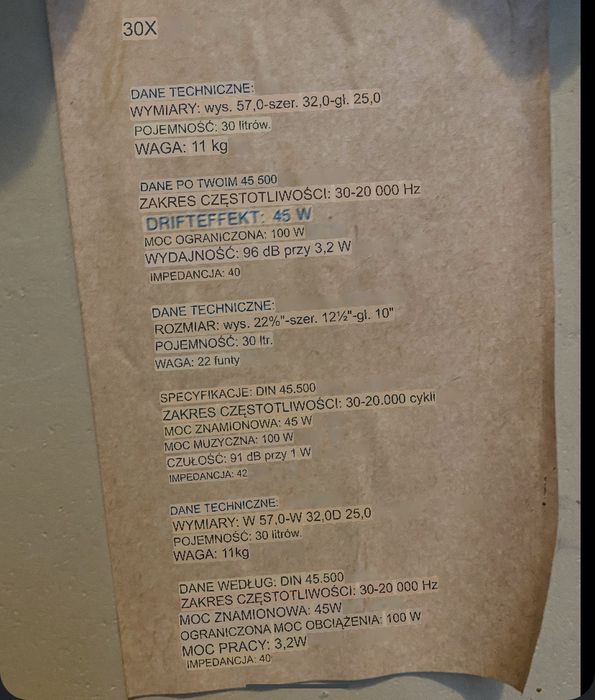 30X
DANE TECHNICZNE:
WYMIARY: wys. 57,0-szer. 32,0-gł. 25,0
POJEMNOŚĆ: 30 litrów.
WAGA: 11 kg
DANE PO TWOIM 45 500
ZAKRES CZĘSTOTLIWOŚCI: 30-20 000 Hz
DRIFTEFFEKT: 45 W
MOC OGRANICZONA: 100 W
WYDAJNOŚĆ: 96 dB przy 3,2 W
IMPEDANCJA: 40
DANE TECHNICZNE:
ROZMIAR: wys. 22⅝"-szer. 12½"-gł. 10"
POJEMNOŚĆ: 30 ltr.
WAGA: 22 funty
SPECYFIKACJE: DIN 45.500
ZAKRES CZĘSTOTLIWOŚCI: 30-20.000 cykli
MOC ZNAMIONOWA: 45 W
MOC MUZYCZNA: 100 W
CZUŁOŚĆ: 91 dB przy 1 W
IMPEDANCJA: 42
DANE TECHNICZNE:
WYMIARY: W 57,0-W 32,0D 25,0
POJEMNOŚĆ: 30 litrów.
WAGA: 11kg
DANE WEDŁUG: DIN 45.500
ZAKRES CZĘSTOTLIWOŚCI: 30-20 000 Hz
MOC ZNAMIONOWA: 45W
OGRANICZONA MOC OBCIĄŻENIA: 100 W
MOC PRACY: 3,2W
IMPEDANCJA: 40